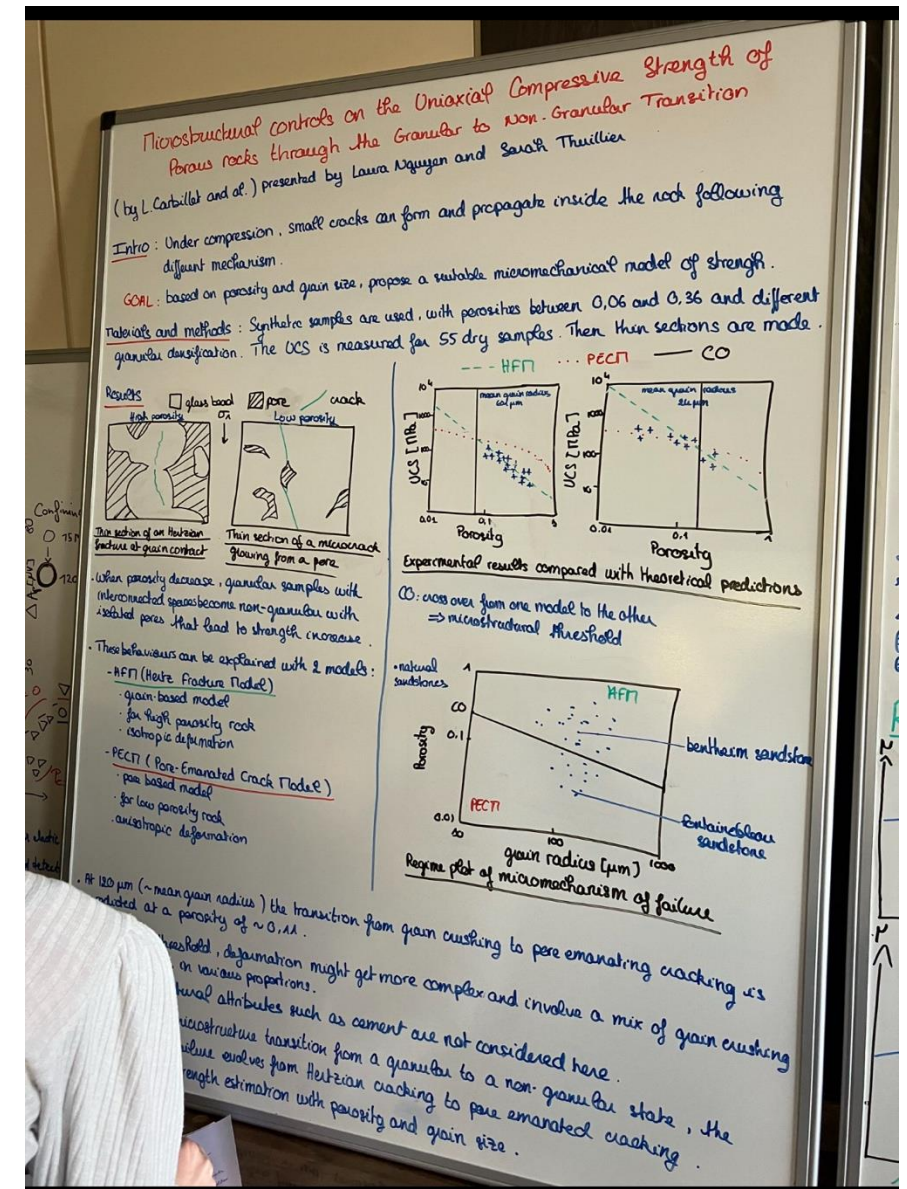 Microstructural controls on the Uniaxial Compressive Strength of
Porous rocks through the Granular to Non-Granular Transition
(by L.Carbillet and al.) presented by Laura Nguyen and Sarah Thuillier
Intro : Under compression, small cracks can form and propagate inside the rock following
different mechanism.
GOAL : based on porosity and grain size, propose a suitable micromechanical model of strengh.
Materials and methods : Synthetic samples are used, with porosities between 0,06 and 0,36 and different
granular densification. The UCS is measured for 55 dry samples. Then thin sections are made.
Results
glass bead
pore
crack
High porosity
Low porosity
Thin section of an Hertzian
fracture at grain contact
Thin section of a microcrack
growing from a pore
. When porosity decrease, granular samples with
interconnected spaces become non-granular with
isolated pores that lead to strength increase.
. These behaviours can be explained with 2 models :
- HFM (Hertz Fracture Model)
. grain-based model
. for high porosity rock
. isotropic deformation
- PECM (Pore-Emanated Crack Model)
. pore based model
. for low porosity rock
. anisotropic deformation
--- HFM ... PECM — CO
10⁴
1000
100
10
UCS [MPa]
mean grain radius
601µm
0.01 0.1 1
Porosity
10⁴
1000
100
10
UCS [MPa]
mean grain radius
0.01 0.1 1
Porosity
Experimental results compared with theoretical predictions
CO : cross over from one model to the other
⇒ microstructural threshold
. natural
sandstones
1
CO
0.1
0.01
Porosity
HFM
PECM
bentheim sandstone
Fontainebleau
sandstone
100 1000
grain radius [µm]
Regime plot of micromechanism of failure
. At 120 µm (~mean grain radius) the transition from grain crushing to pore emanating cracking is
at a porosity of ~0,11.
deformation might get more complex and involve a mix of grain crushing
various proportions.
attributes such as cement are not considered here.
microstructure transition from a granular to a non-granular state, the
evolves from Hertzian cracking to pore emanated cracking.
estimation with porosity and grain size.
Confining